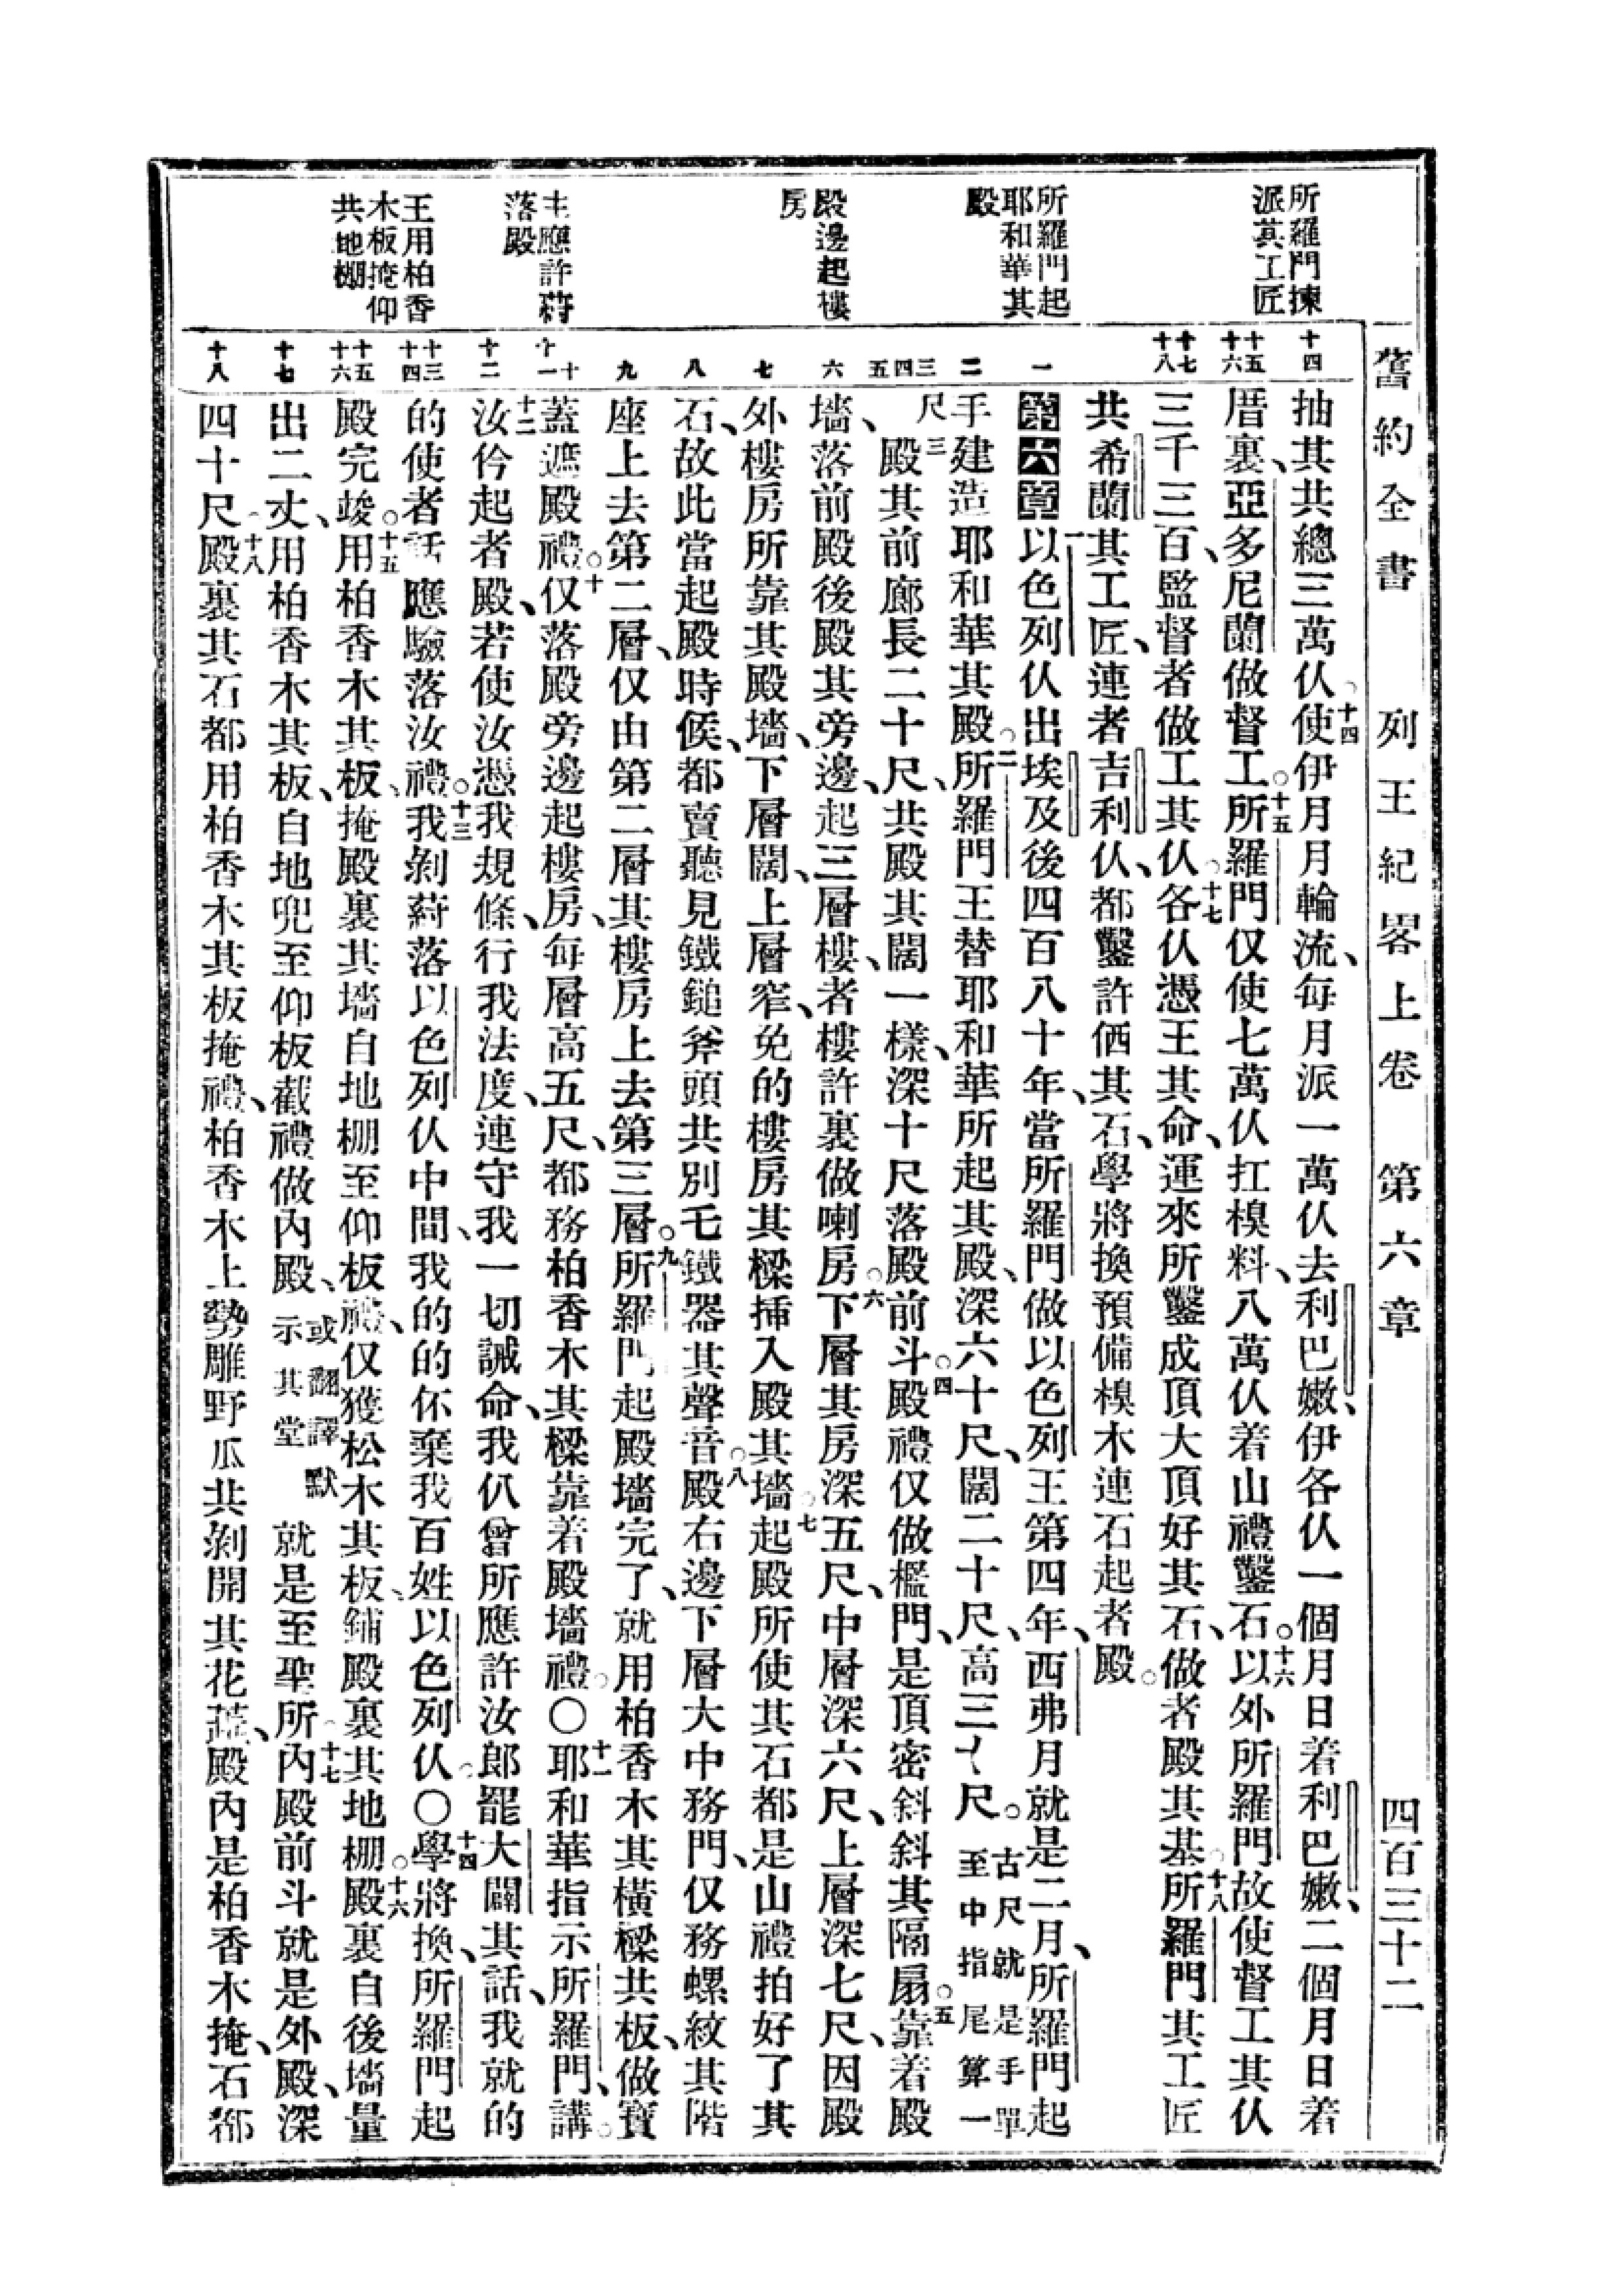 舊約全書 列王紀畧上卷 第六章 四百三十二
所羅門揀
派其工匠
所羅門起
耶和華其
殿
殿邊起樓
房
主應許蒞
落殿
王用柏香
木板掩仰
共地棚
十四
十五
十六
十七
十八
一
二
三
四
五
六
七
八
九
十
十一
十二
十三
十四
十五
十六
十七
十八
抽其共總三萬仈○十四使伊月月輪流、每月派一萬仈去利巴嫩、伊各仈一個月日着利巴嫩、二個月日着
厝裏、亞多尼蘭做督工○十五所羅門仅使七萬仈扛模料、八萬仈着山禮鑿石○十六以外所羅門故使督工其仈
三千三百、監督者做工其仈○十七各仈憑王其命、運來所鑿成頂大頂好其石、做者殿其基○十八所羅門其工匠
共希蘭其工匠、連者吉利仈、都鑿許栖其石、學將換預備模木連石起者殿○
第六章 一以色列仈出埃及後四百八十年、當所羅門做以色列王第四年、西弗月就是二月、所羅門起
手建造耶和華其殿○二所羅門王替耶和華所起其殿、深六十尺、闊二十尺、高三十尺○古尺就是手單至中指尾算一
尺 三殿其前廊長二十尺、共殿其闊一樣、深十尺落殿前斗○四殿禮仅做檻門、是頂密斜斜其隔扇○五靠着殿
墻、落前殿後殿其旁邊、起三層樓、者樓許裏做喇房○六下層其房深五尺、中層深六尺、上層深七尺、因殿
外樓房所靠其殿墻、下層闊、上層窄、免的樓房其樑插入殿其墻○七起殿所使其石都是山禮拍好了其
石、故此當起殿時候、都賣聽見鐵鎚斧頭共別乇鐵器其聲音○八殿右邊下層大中務門、仅務螺紋其階
座上去第二層、仅由第二層其樓房上去第三層○九所羅門起殿墻完了、就用柏香木其橫樑共板、做寶
蓋遮殿禮○十仅落殿旁邊起樓房、每層高五尺、都務柏香木其樑靠着殿墻禮○十一耶和華指示所羅門、講○
十二汝仱起者殿、若使汝憑我規條、行我法度、連守我一切誡命、我仈曾所應許汝郎罷大闢其話、我就的
的使者話應驗落汝禮○十三我剝蒞落以色列仈中間、我的的伓棄我百姓以色列仈○十四學將換、所羅門起
殿完竣○十五用柏香木其板、掩殿裏其墻自地棚至仰板禮、仅獲松木其板、鋪殿裏其地棚○十六殿裏自後墻量
出二丈、用柏香木其板、自地兜至仰板截禮做內殿、或翻譯默示其堂 就是至聖所○十七內殿前斗就是外殿、深
四十尺○十八殿裏其石都用柏香木其板掩禮、柏香木上勢雕野瓜共剝開其花蕊、殿內是柏香木掩、石都